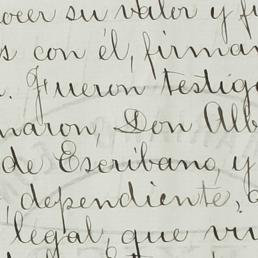 ocer su valor y fi
s con él, firman
. Fueron testigo
maron, Don Alb
de Escribano, y
, dependiente,
legal, que vi